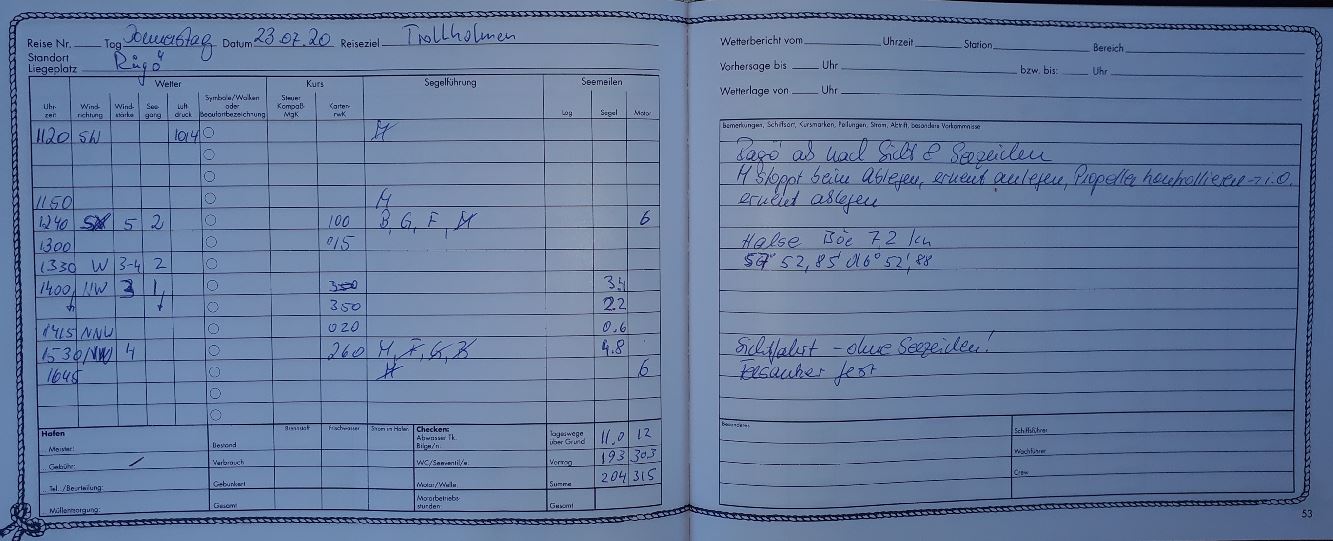 Reise Nr. Tag Donnerstag Datum 23.07.20 Reiseziel Trollholmen
Standort
Liegeplatz Rågö
Wetter Kurs Segelführung Seemeilen
Uhrzeit Windrichtung Windstärke Seegang Luftdruck Symbole/Wolken oder Beaufortbezeichnung Steuer Kompaß MgK Karten- rwK Log Segel Motor
1120 SW 1014 M
1150 M
1240 SW 5 2 100 B, G, F, M 6
1300 015
1330 W 3-4 2
1400 NW 3 1 350 3.4
350 2.2
1415 NNW 020 0.6
1530 NW 4 260 M, F, G, B 4.8
1645 M 6
Hafen Brennstoff Frischwasser Strom im Hafen Checken:
Meister: Bestand Abwasser Tk. Bilge/n. Tageswege über Grund 11,0 12
Gebühr: / Verbrauch WC/Seeventil/e. Vortrag 193 303
Tel. /Beurteilung: Gebunkert Motor/Welle: Summe 204 315
Müllentsorgung: Gesamt Motorbetriebsstunden: Gesamt
Wetterbericht vom Uhrzeit Station Bereich
Vorhersage bis Uhr bzw. bis: Uhr
Wetterlage von Uhr
Bemerkungen, Schiffsort, Kursmarken, Peilungen, Strom, Abtrift, besondere Vorkommnisse
ab nach Sicht & Seezeichen
M stoppt beim Ablegen, erneut anlegen, Propeller kontrollieren → i.O.
erneut ablegen
Halse Böe 7.2 kn
52,85' 016° 52',88
Sichtfahrt - ohne Seezeichen!
Felsanker fest
Besonderes Schiffsführer
Wachführer
Crew
53